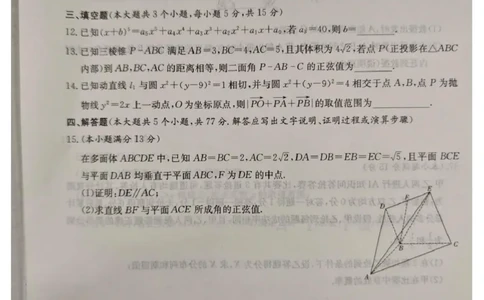 三、填空题(本大题共3个小题,每小题5分,共15分)
12. 已知(x+b)⁵=a₅x⁵+a₄x⁴+a₃x³+a₂x²+a₁x+a₀,若a₃=40,则b=
13. 已知三棱锥P-ABC满足AB=3,BC=4,AC=5,且其体积为4√2,若点P(正投影在△ABC
内部)到AB,BC,AC的距离相等,则二面角P-AB-C的正弦值为
14. 已知动直线l₁与圆x²+(y-9)²=1相切,并与圆x²+(y-9)²=4相交于点A,B,点P为抛
物线y²=2x上一动点,O为坐标原点,则|PO+PA+PB|的取值范围为
四、解答题(本大题共5个小题,共77分.解答应写出文字说明、证明过程或演算步骤)
15. (本小题满分13分)
在多面体ABCDE中,已知AB=BC=2,AC=2√2,DA=DB=EB=EC=√5,且平面BCE
与平面DAB均垂直于平面ABC,F为DE的中点.
(1)证明:DE∥AC;
(2)求直线BF与平面ACE所成角的正弦值.
E
D
B
C
A